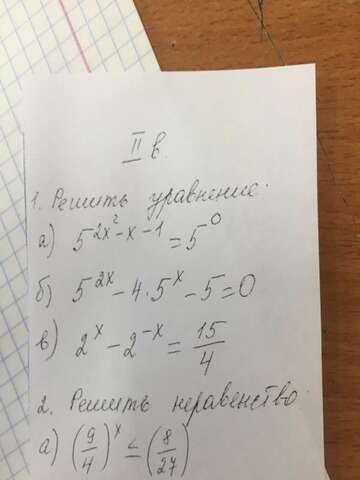 II в.
1. Решить уравнение:
а) 5^{2x²-x-1} = 5^0
б) 5^{2x} - 4·5^x - 5 = 0
в) 2^x - 2^{-x} = 15/4
2. Решить неравенство
а) (9/4)^x ≤ (8/27)